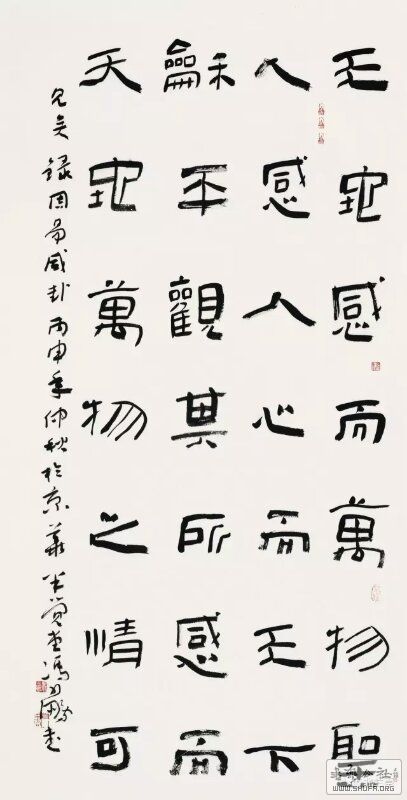 天地感而萬物聖
人感人心而天下
龢平觀其所感而
天地萬物之情可
見矣 錄周易咸卦 丙申年仲秋於京華
WWW.SHUFA.ORG